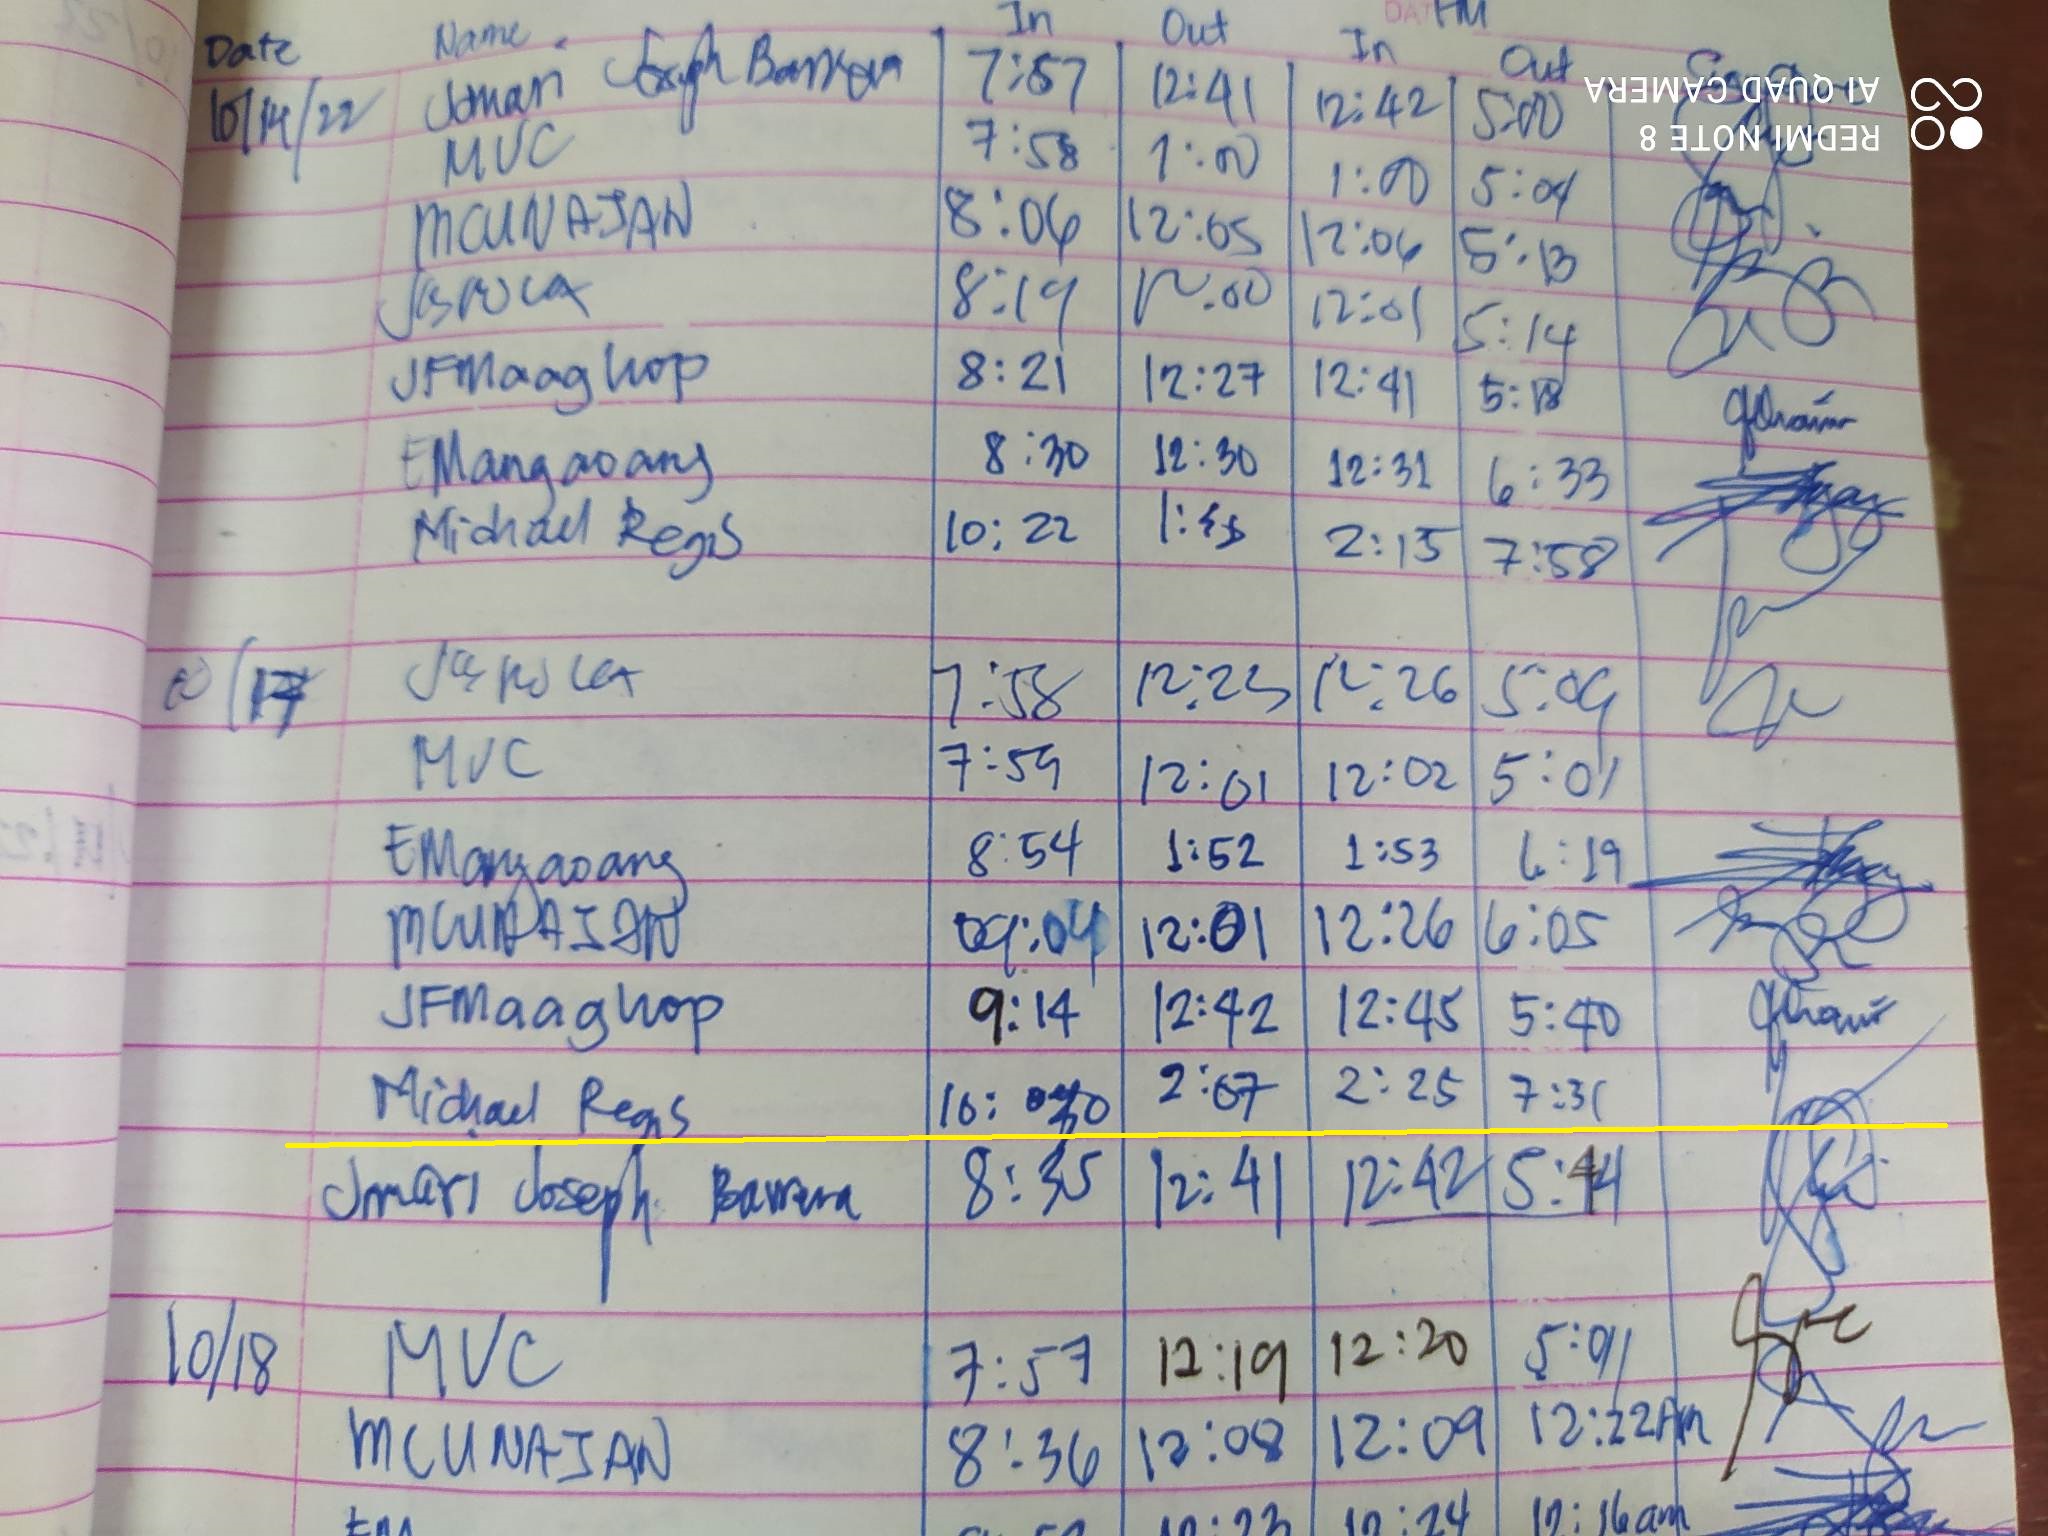 In Out In Out
Date Name
10/14/22 Jomari Joseph Barrera 7:57 12:41 12:42 5:00
MVC 7:58 1:00 1:00 5:04
MCUNAJAN 8:06 12:05 12:06 5:13
8:19 12:00 12:01 5:14
JFMaaghop 8:21 12:27 12:41 5:18
EMangaoang 8:30 12:30 12:31 6:33
Michael Regis 10:22 2:15 7:58
7:58 12:23 12:26 5:09
MVC 7:59 12:01 12:02 5:01
EMangaoang 8:54 1:52 1:53 6:19
MCUNAJAN 09:04 12:01 12:26 6:05
JFMaaghop 9:14 12:42 12:45 5:40
Michael Regis 2:07 2:25 7:31
Jmari Joseph Barrera 8:35 12:41 12:42 5:44
10/18 MVC 7:57 12:19 12:20 5:01
MCUNAJAN 8:36 12:08 12:09 12:22AM
EM 12:23 12:24 12:16am
REDMI NOTE 8
AI QUAD CAMERA